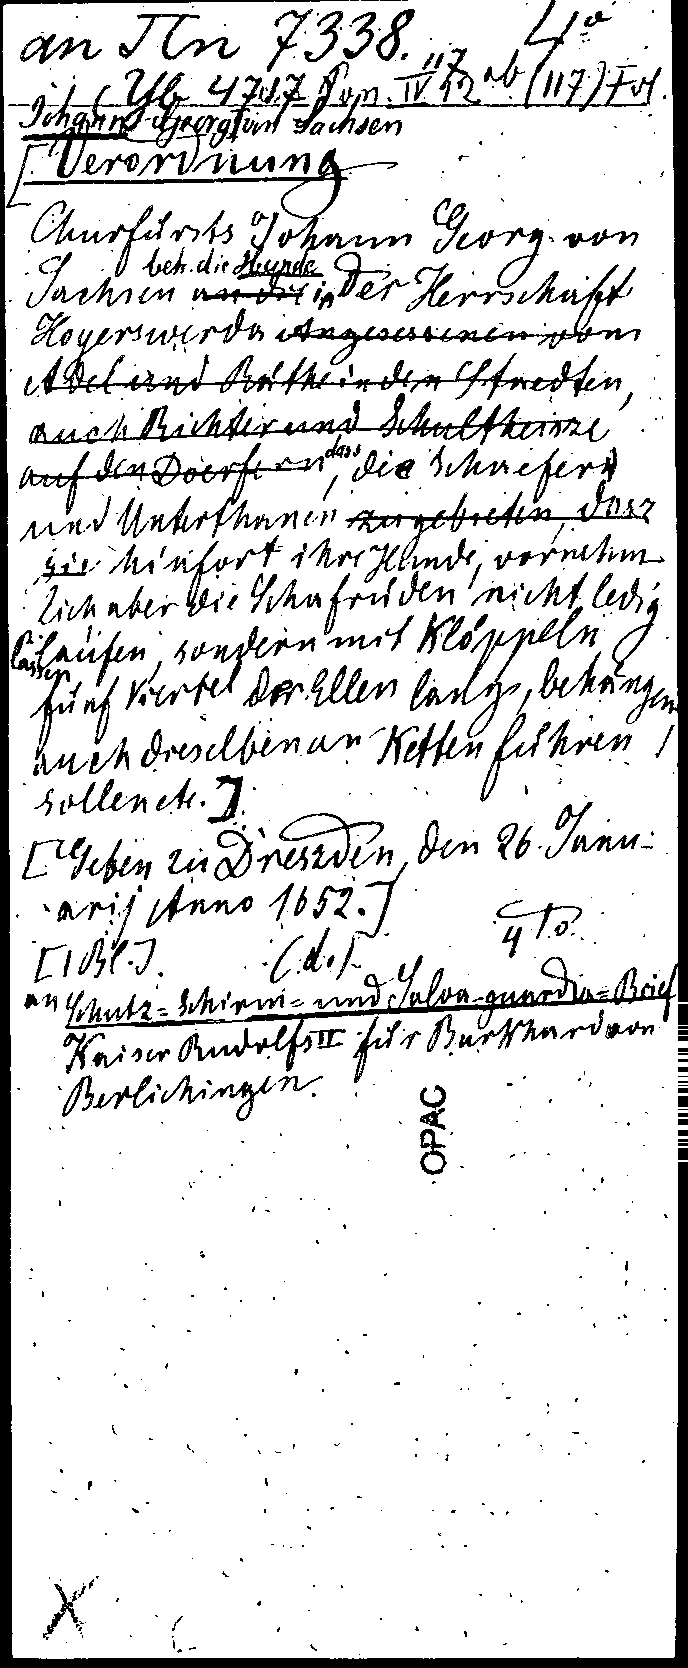 an Tln 7338. 4°
Yb 4737 Fon. IV 22 ab (117) Fol.
117
Johann Georg von Sachsen
[Verordnung
Churfürsts Johann Georg von
beh. die Hunde
Sachsen an die in Der Herrschafft
Hoyerswerda Angesessenen vom
Adel und Räthe in den Staedten,
auch Richter und Schultheisze
auf den Doerfern, dass die Schaefer
und Unterthanen zugebieten, dasz
sie hinfort ihre Hunde, vornehm
lich aber die Schafrüden nicht ledig
laufen lassen, sondern mit Klöppeln
fünf Viertel der Ellen lang, behängen
auch dieselben an Ketten führen
sollen etc.]
[Geben zu Dreszden, den 26. Janu-
arij Anno 1652.]
[1 Bl.]. (d.) 4to
an Schutz=Schirm= und Salva-guardia=Brief
Kaiser Rudolfs II für Burkhard von
Berlichingen.
OPAC
X